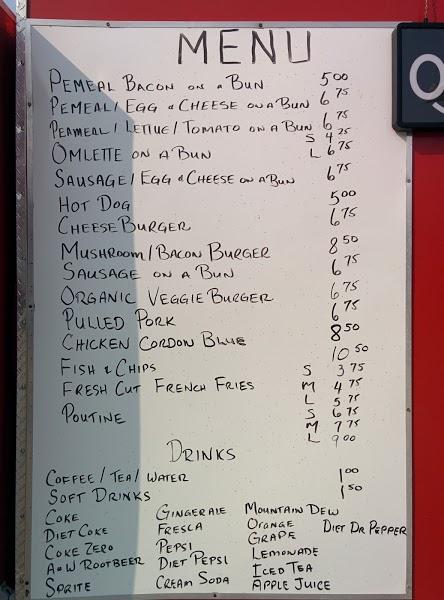 MENU
Q
PEMEAL BACON ON A BUN 5.00
PEMEAL/EGG & CHEESE ON A BUN 6.75
PEAMEAL/LETTUC/TOMATO ON A BUN 6.75
OMLETTE ON A BUN S 4.25
L 6.75
SAUSAGE/EGG & CHEESE ON A BUN 6.75
HOT DOG 5.00
CHEESE BURGER 6.75
MUSHROOM/BACON BURGER 8.50
SAUSAGE ON A BUN 6.75
ORGANIC VEGGIE BURGER 6.75
PULLED PORK 6.75
CHICKEN CORDON BLUE 8.50
FISH & CHIPS 10.50
FRESH CUT FRENCH FRIES S 3.75
M 4.75
L 5.75
POUTINE S 6.75
M 7.75
L 9.00
DRINKS
COFFEE/TEA/WATER 1.00
SOFT DRINKS 1.50
COKE GINGERALE MOUNTAIN DEW
DIET COKE FRESCA ORANGE DIET DR PEPPER
COKE ZERO PEPSI GRAPE
A&W ROOTBEER DIET PEPSI LEMONADE
SPRITE CREAM SODA ICED TEA
APPLE JUICE